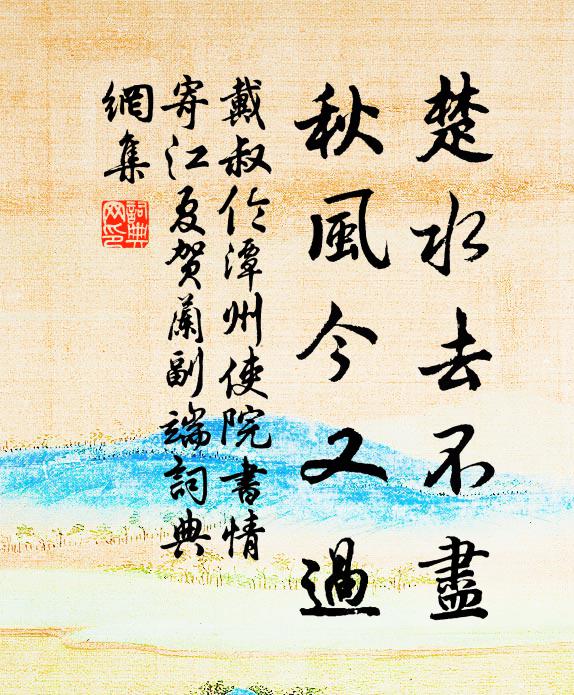 楚水去不盡
秋風今又過
戴叔倫潭州使院書情
寄江夏賀蘭副端詞典
網集
詞典網印